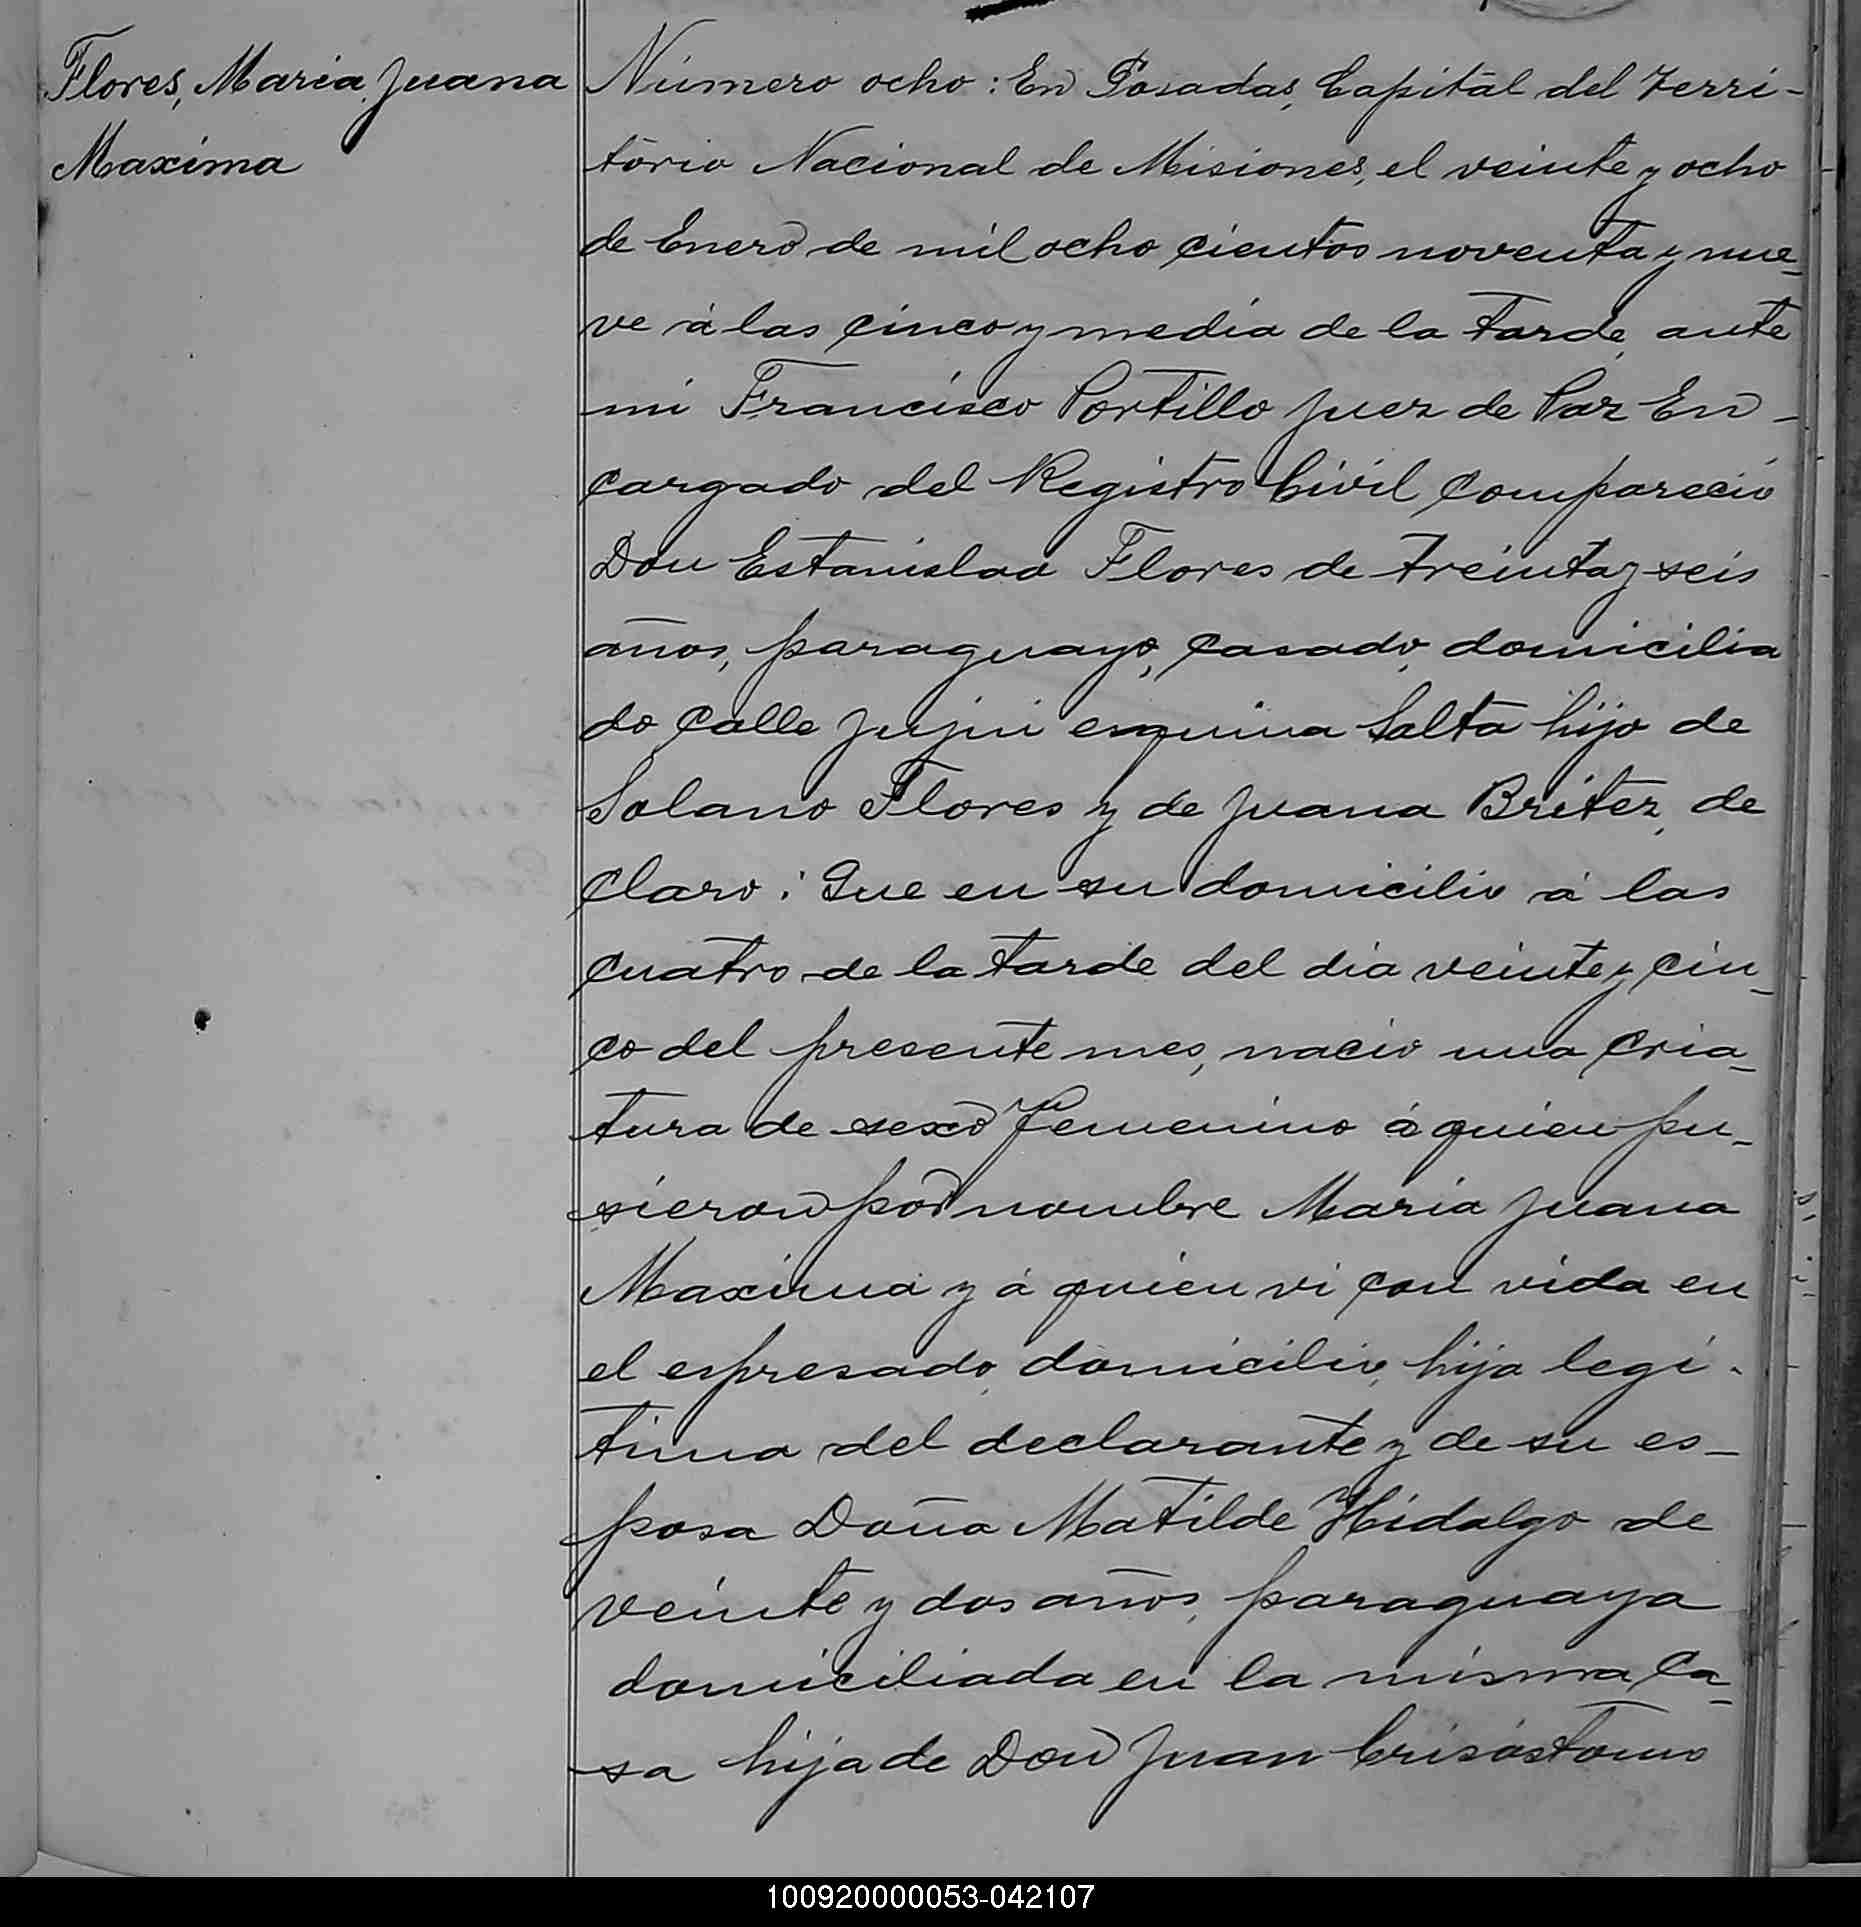 Flores, Maria Juana
Maxima
Número ocho: En Posadas, Capital del Terri-
torio Nacional de Misiones, el veinte y ocho
de Enero de mil ocho cientos noventa y nue-
ve á las cinco y media de la tarde, ante
mi Francisco Portillo Juez de Paz En-
cargado del Registro Civil compareció
Don Estanislao Flores de treinta y seis
años, paraguayo, casado, domicilia
do calle Jujui esquina Salta hijo de
Solano Flores y de Juana Britez, de
claro: Que en su domicilio á las
cuatro de la tarde del dia veinte y cin-
co del presente mes, nacio una cria-
tura de sexo Femenino á quien pu-
sieron por nombre Maria Juana
Maxima y á quien vi con vida en
el espresado domicilio, hija legi-
tima del declarante y de su es-
posa Doña Matilde Hidalgo de
veinte y dos años, paraguaya
domiciliada en la misma ca-
sa hija de Don Juan Crisóstomo
100920000053-042107